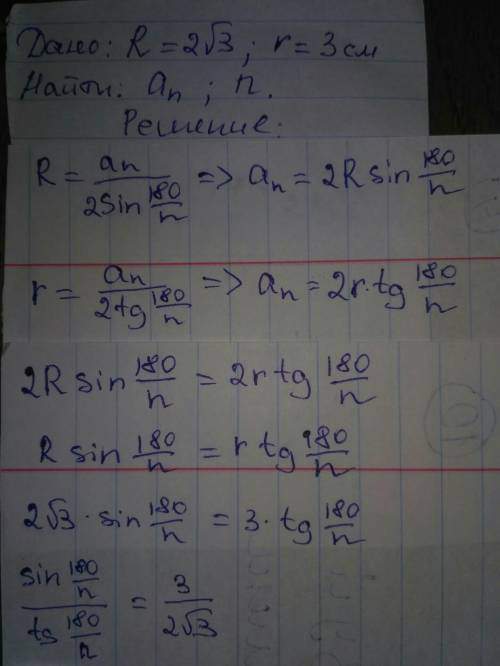 Дано: R = 2√3; r = 3 см
Найти: aₙ; n.
Решение:
R = aₙ / (2Sin 180/n) => aₙ = 2R sin 180/n
r = aₙ / (2tg 180/n) => aₙ = 2r·tg 180/n
2R sin 180/n = 2r tg 180/n
R sin 180/n = r tg 180/n
2√3 · sin 180/n = 3 · tg 180/n
(sin 180/n) / (tg 180/n) = 3 / (2√3)